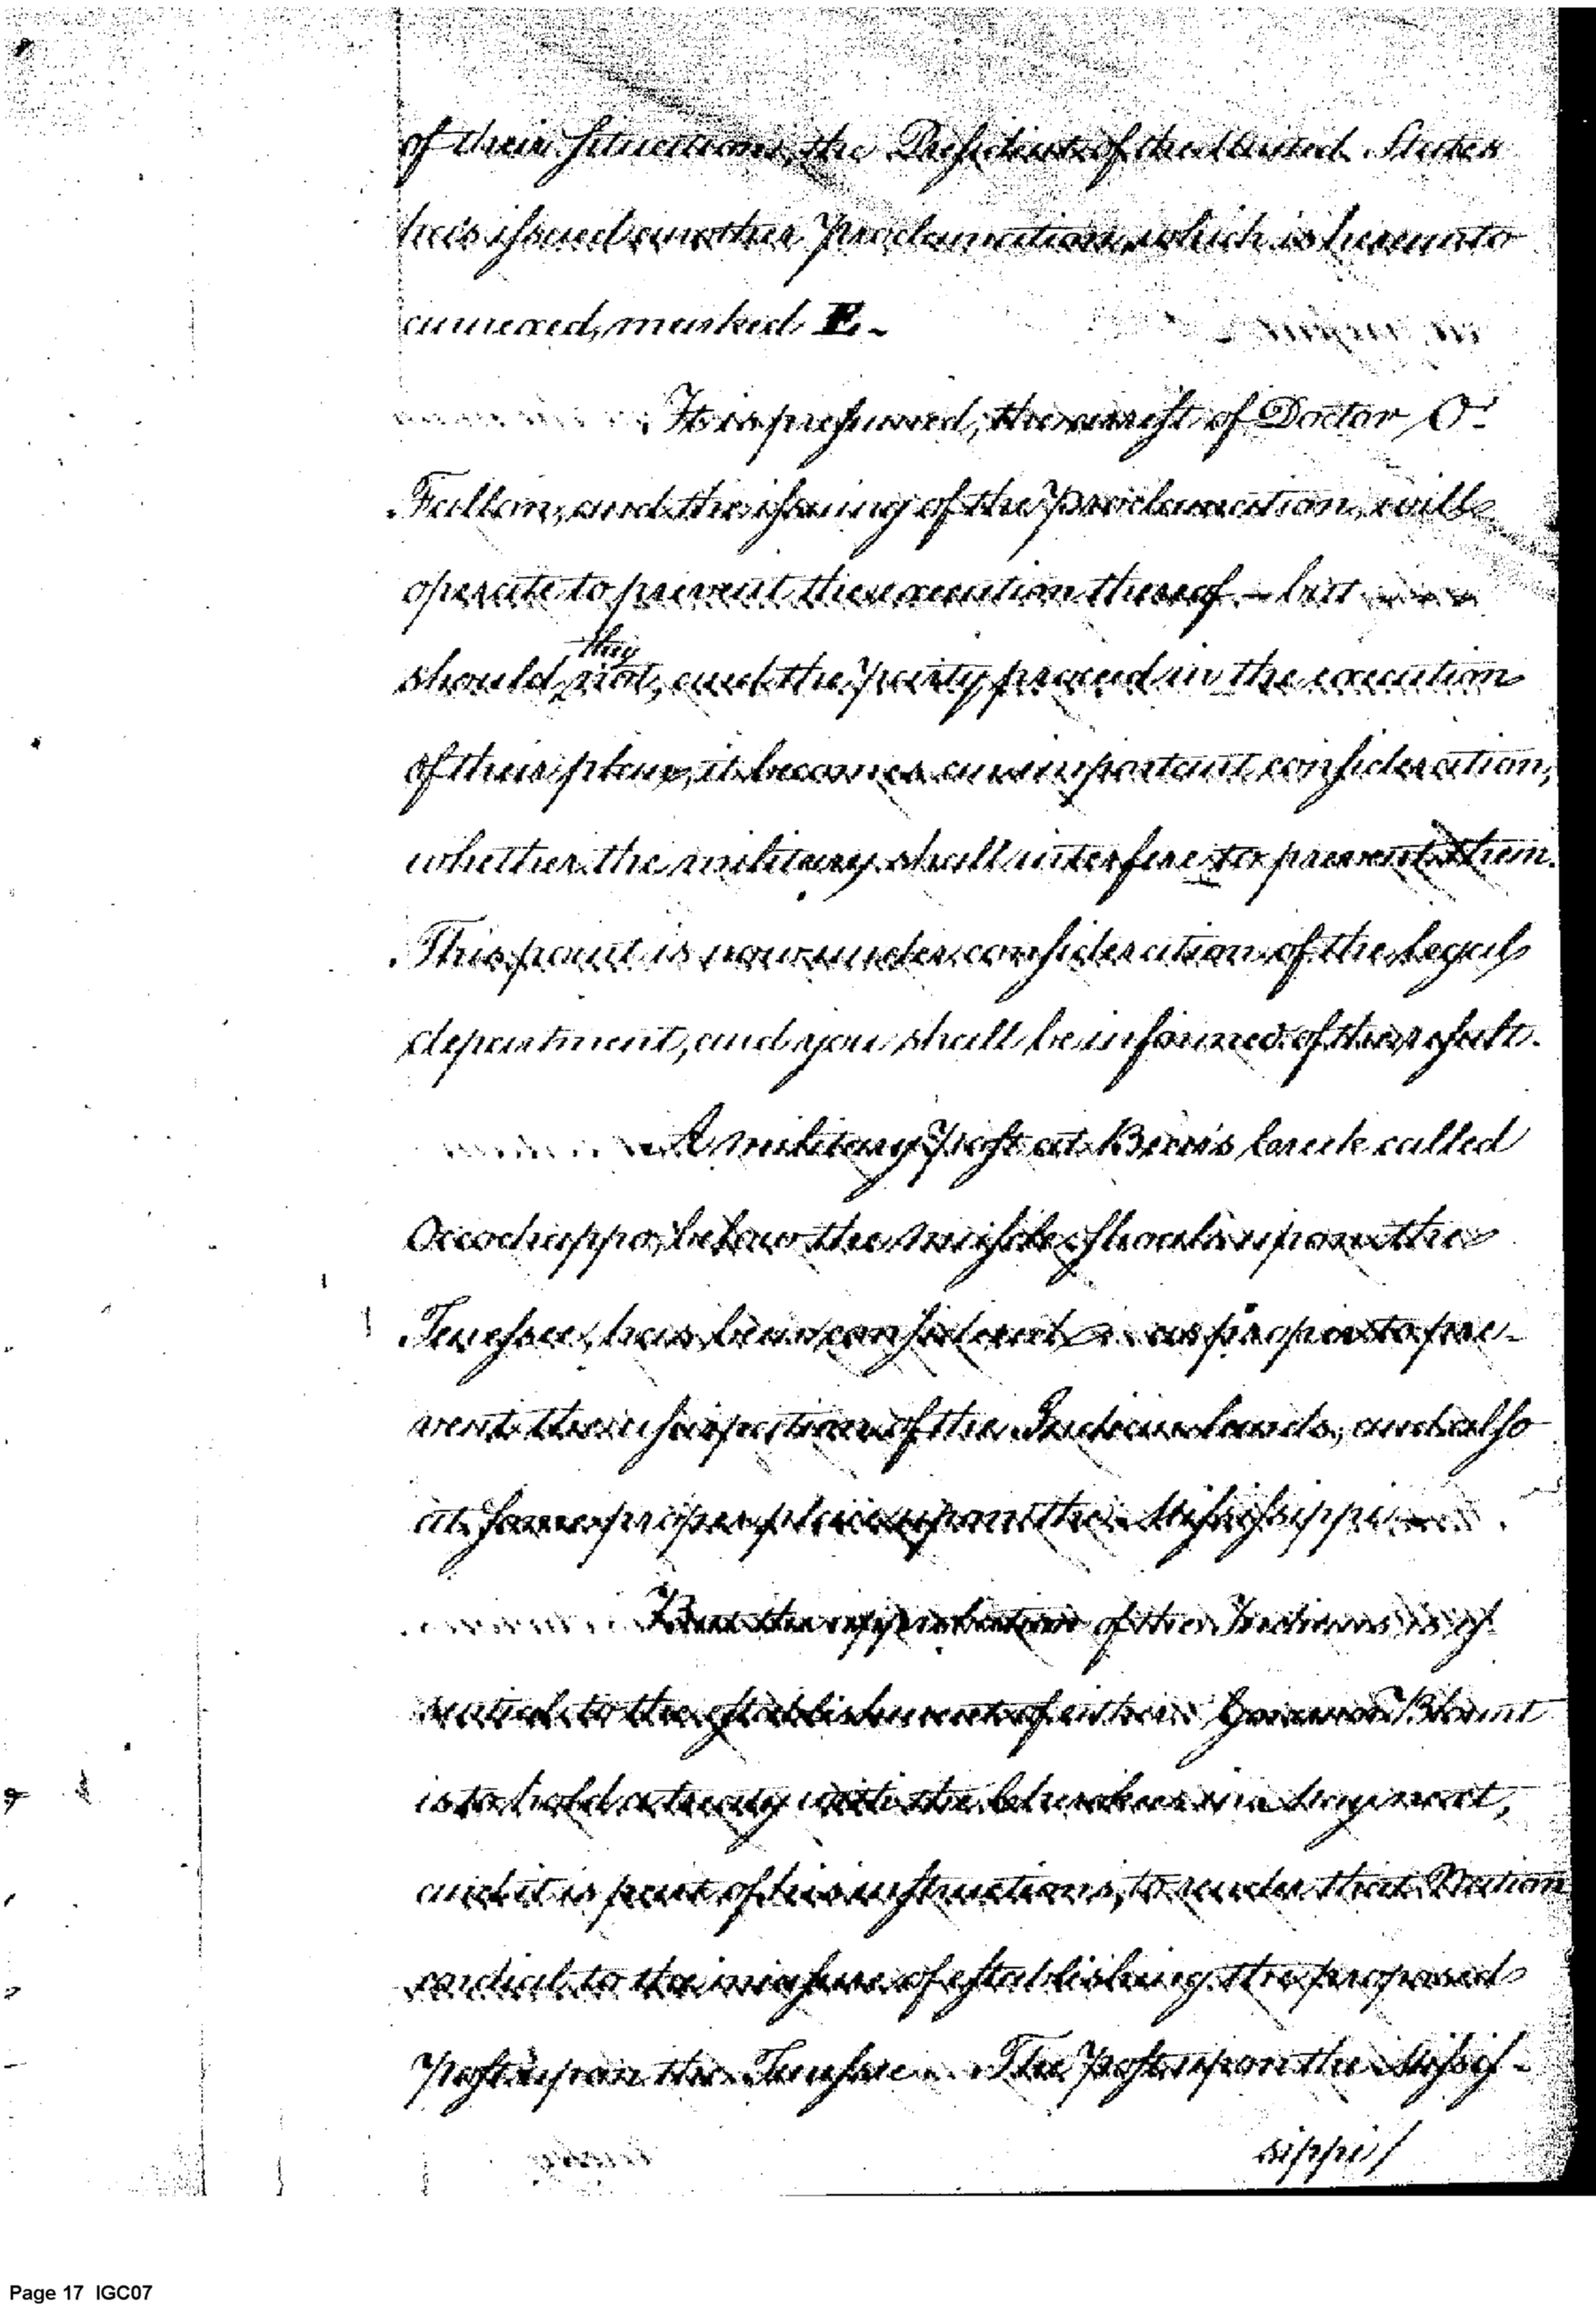 of their situations, the President of the United States
has issued another Proclamation, which is hereunto
annexed, marked E.
It is presumed, the arrest of Doctor O'
Fallon, and the issuing of the Proclamation, will
operate to prevent the execution thereof – but
they
should, not, and the party proceed in the execution
of their plans, it becomes an important consideration,
whether the military shall interfere to prevent them.
This point is now under consideration of the legal
department, and you shall be informed of the result.
A military Post at Bear's Creek called
Occochappo, below the Muscle Shoals upon the
Tenessee, has been considered as proper to pre-
vent the usurpation of the Indian lands, and also
at some proper place upon the Missisippi
But the approbation of the Indians is es
sential to the establishment of either Governor Blount
is to hold a treaty with the Cherokees in May next,
and it is part of his instructions, to render that Nation
cordial to the measure of establishing the proposed
Post upon the Tenessee. The Post upon the Missis-
sippi/
Page 17 IGC07